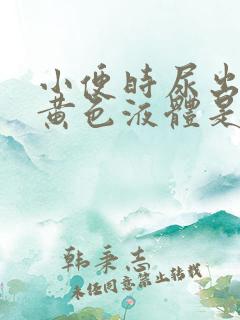 小便時尿出
黄色液體是
韩秉志
未经同意禁止转载